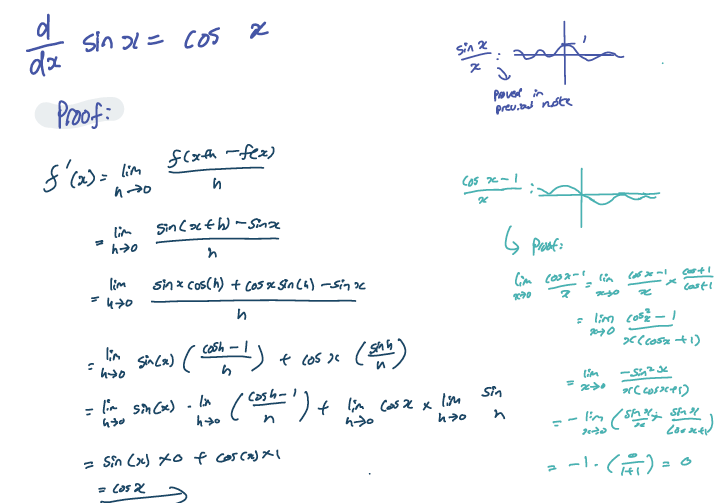 d/dx sin x = cos x
Proof:
f'(x) = lim h→0 f(x+h - f(x) / h
= lim h→0 sin(x+h) - sinx / h
= lim h→0 sin x cos(h) + cos x sin(h) - sin x / h
= lim h→0 sin(x) (cosh - 1 / h) + cos x (sinh / h)
= lim h→0 sin(x) · lim h→0 (cosh - 1 / h) + lim h→0 cos x × lim h→0 sin / h
= sin(x) × 0 + cos(x) × 1
= cos x
sin x / x : 1
proved in
previous note
cos x - 1 / x :
Proof:
lim x→0 cos x - 1 / x = lim x→0 cos x - 1 / x × cos+1 / cos+1
= lim x→0 cos²x - 1 / x(cosx + 1)
= lim x→0 -sin²x / x(cosx+1)
= - lim x→0 (sin x / x × sin x / cos x+1)
= -1 · (0 / 1+1) = 0